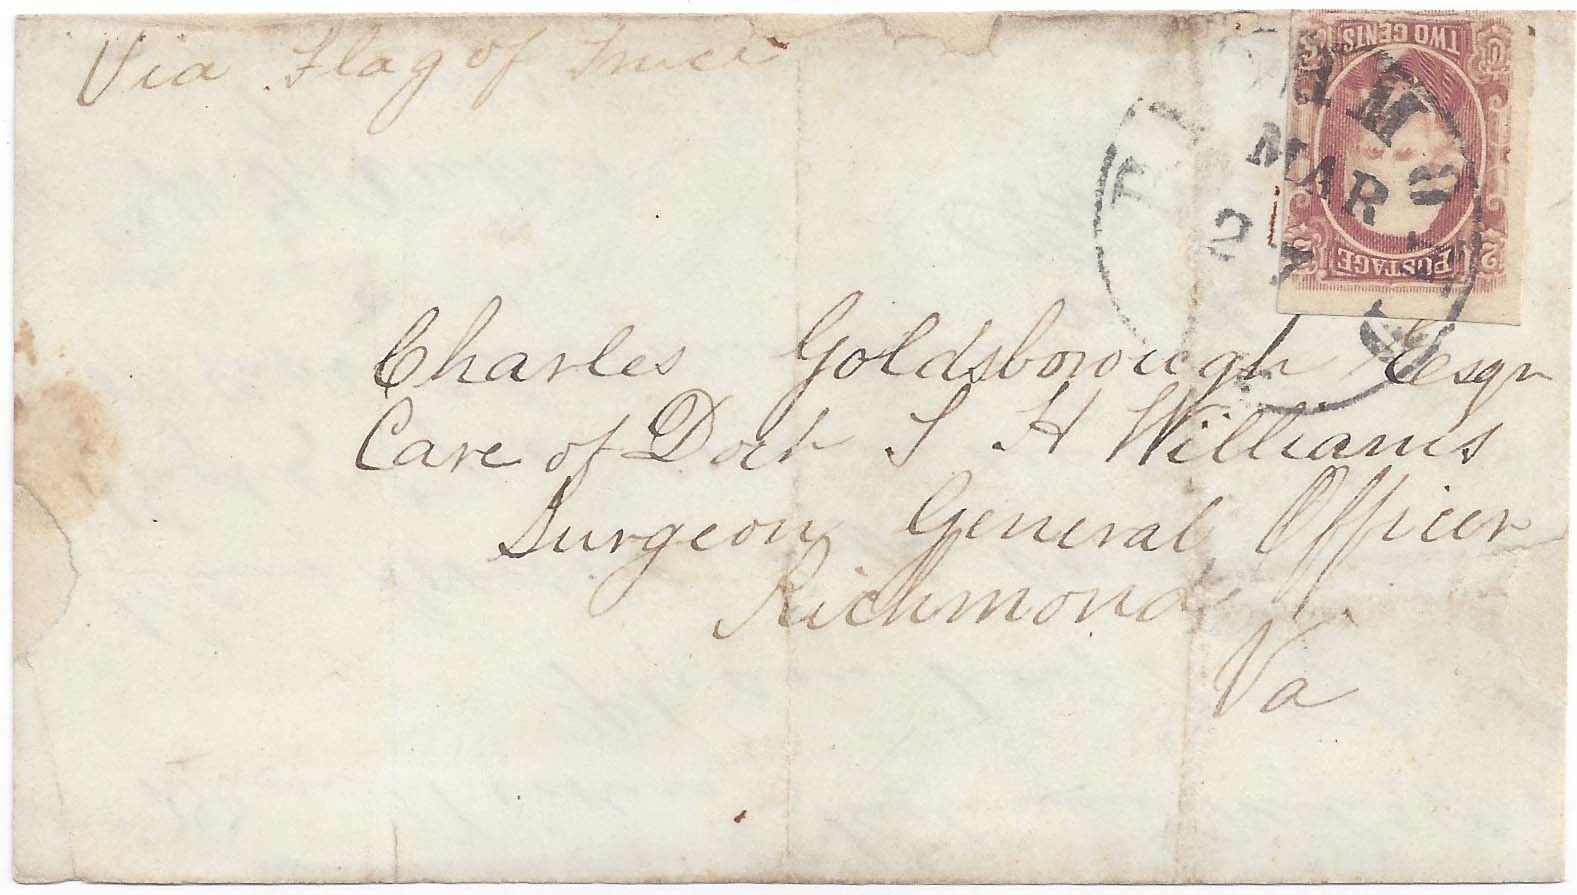 Via Flag of Truce
TWO CENTS
POSTAGE
RICHMOND
MAR
27
Charles Goldsborough Esqr
Care of Doct S H Williams
Surgeon General Officer
Richmond
Va